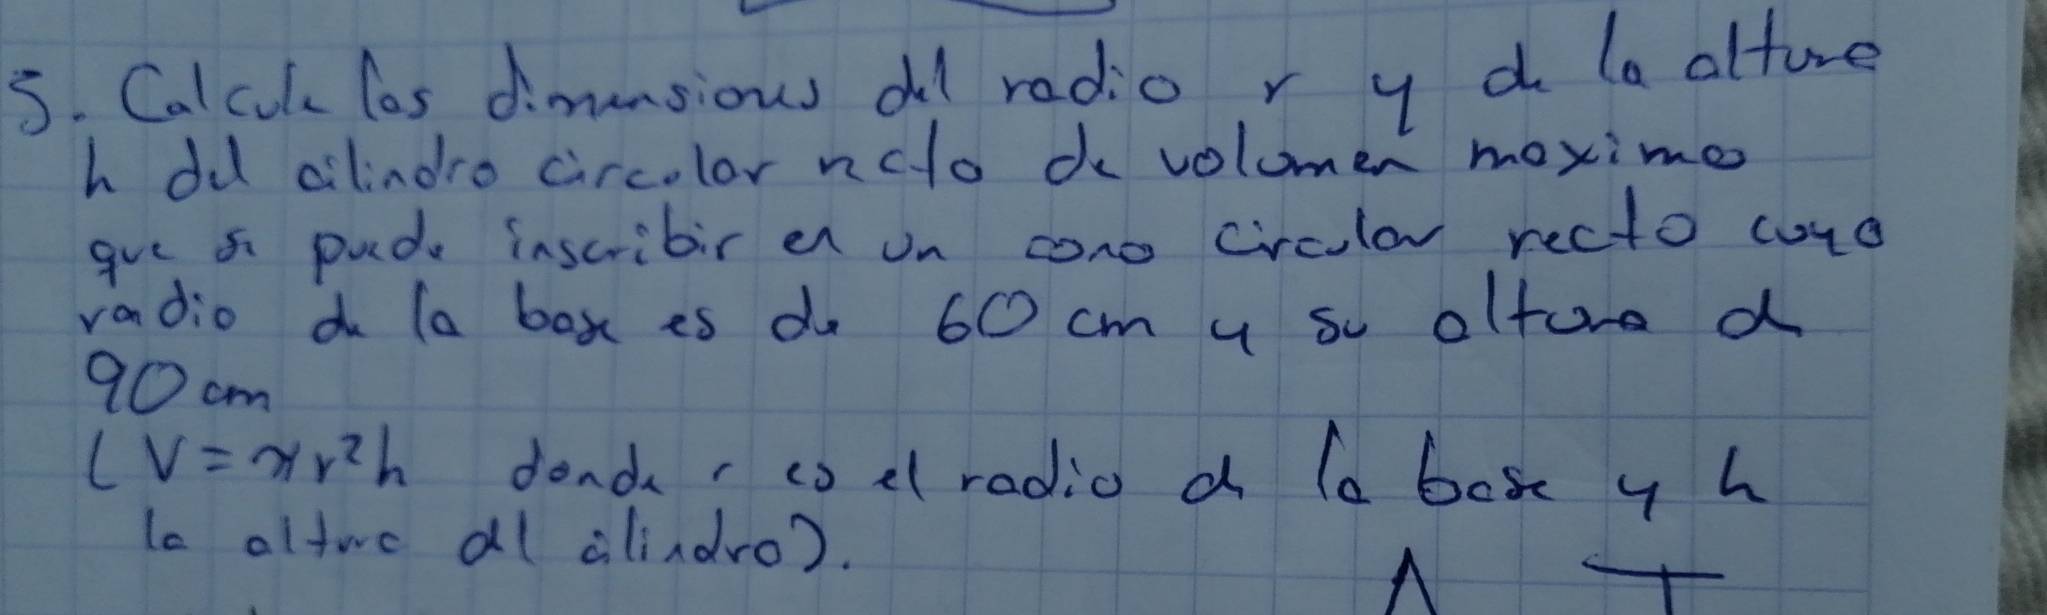 5. Calcule las dimensiones del radio r y de la altura
h del cilindro circular recto de volumen maximo
que se puede inscribir en un cono circular recto cuyo
radio de la base es de 60 cm y su altura de
90 cm
(V = πr²h donde r es el radio de la base y h
la altura del cilindro).